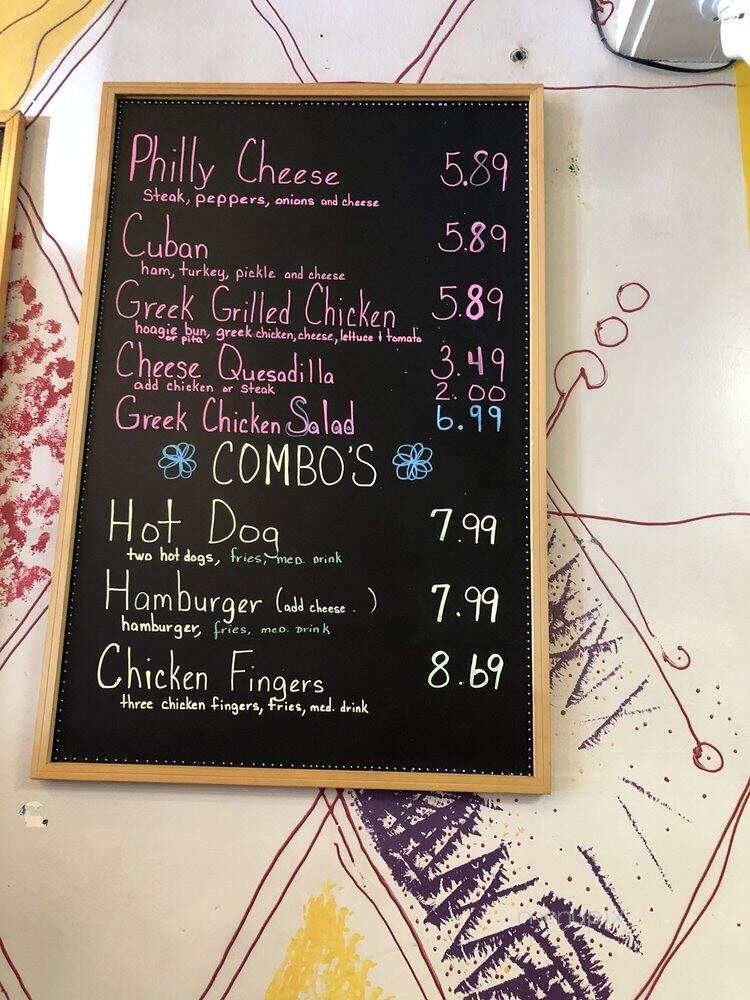 Philly Cheese 5.89
Steak, peppers, onions and cheese
Cuban 5.89
ham, turkey, pickle and cheese
Greek Grilled Chicken 5.89
hoagie bun, greek chicken, cheese, lettuce & tomato
or pita
Cheese Quesadilla 3.49
add chicken or steak 2.00
Greek Chicken Salad 6.99
COMBO'S
Hot Dog 7.99
two hot dogs, fries, med. drink
Hamburger (add cheese . ) 7.99
hamburger, fries, med. Drink
Chicken Fingers 8.69
three chicken fingers, fries, med. drink